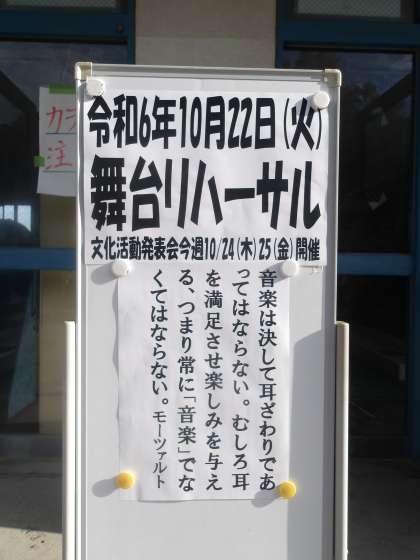 令和6年10月22日(火)
舞台リハーサル
文化活動発表会今週10/24(木)25(金)開催
音楽は決して耳ざわりであ
ってはならない。むしろ耳
を満足させ楽しみを与え
る、つまり常に「音楽」でな
くてはならない。モーツァルト
カラ
注